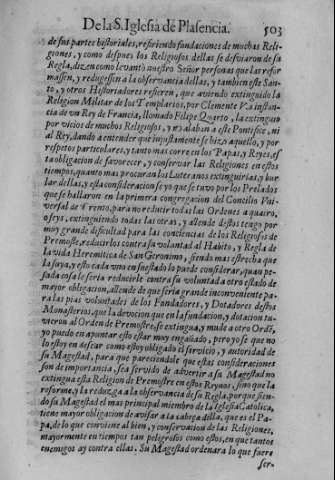 De la S. Iglesia de Plasencia. 503
de sus partes historiales, refiriendo fundaciones de muchas Reli-
giones, y como despues los Religiosos dellas se desviaron de su
Regla, dizen como levantò nuestro Señor personas que las refor
massen, y redugessen a la observancia dellas, y tambien este San-
to, y otros Historiadores refieren, que aviendo extinguido la
Religion Militar de los Templarios, por Clemente V. a instan-
cia de un Rey de Francia, llamado Filipe Quarto, la extinguio
por vicios de muchos Religiosos, y no alaban a este Pontifice, ni
al Rey, dando a entender que injustamente se hizo aquello, y por
respetos particulares, y tanto mas corre en los Papas, y Reyes, es
ta obligacion de favorecer, y conservar las Religiones en estos
tiempos, quanto mas procuran los Luteranos extinguirlas, y bur
lar dellas, y esta consideracion se yo que se tuvo por los Prelados
que se hallaron en la primera congregacion del Concilio Vni-
versal de Trento, para no reducir todas las Ordenes a quatro,
o seys, extinguiendo todas las otras, y allende destos tengo por
muy grande dificultad para las conciencias de los Religiosos de
Premoste, reducirlos contra su voluntad al Habito, y Regla de
la vida Heremitica de San Geronimo, siendo mas estrecha que
la suya, y esto cada uno en su estado lo puede considerar, quan pe-
sada cosa le seria reducirle contra su voluntad a otro estado de
mayor obligacion, allende de que seria grande inconveniente pa-
ra las pias voluntades de los Fundadores, y Dotadores destos
Monasterios, que la devocion que en la fundacion, y dotacion tu-
vieron al Orden de Premostre, se extingua, y mude a otro Ordẽ,
yo puedo en apuntar esto estar muy engañado, pero yo se que no
lo estoy en desear como estoy obligado el servicio, y autoridad de
su Magestad, para que pareciendole que estas consideraciones
son de importancia, sea servido de advertir a su Magestad no
extingua esta Religion de Premostre en estos Reynos, sino que la
reforme, y la reduzga a la observancia de su Regla, porque sien-
do su Magestad el mas principal miembro de la Iglesia Catolica,
tiene mayor obligacion de avisar a la cabeça della, que es el Pa-
pa, de lo que conviene al bien, y conservacion de las Religiones,
mayormente en tiempos tan peligrosos como estos, en que tantos
enemigos ay contra ellas. Su Magestad ordenara lo que fuere
ser-